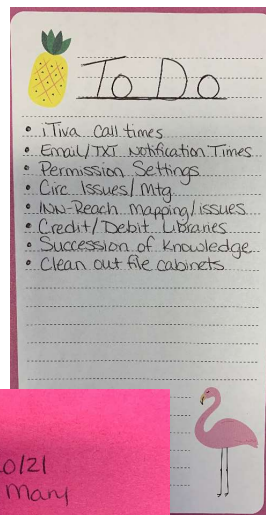 To Do
• iTiva call times
• Email/TXT Notification Times
• Permission Settings
• Circ Issues/Mtg
• INN-Reach Mapping/issues
• Credit/Debit Libraries
• Succession of Knowledge
• Clean out file cabinets
0/21
Mary